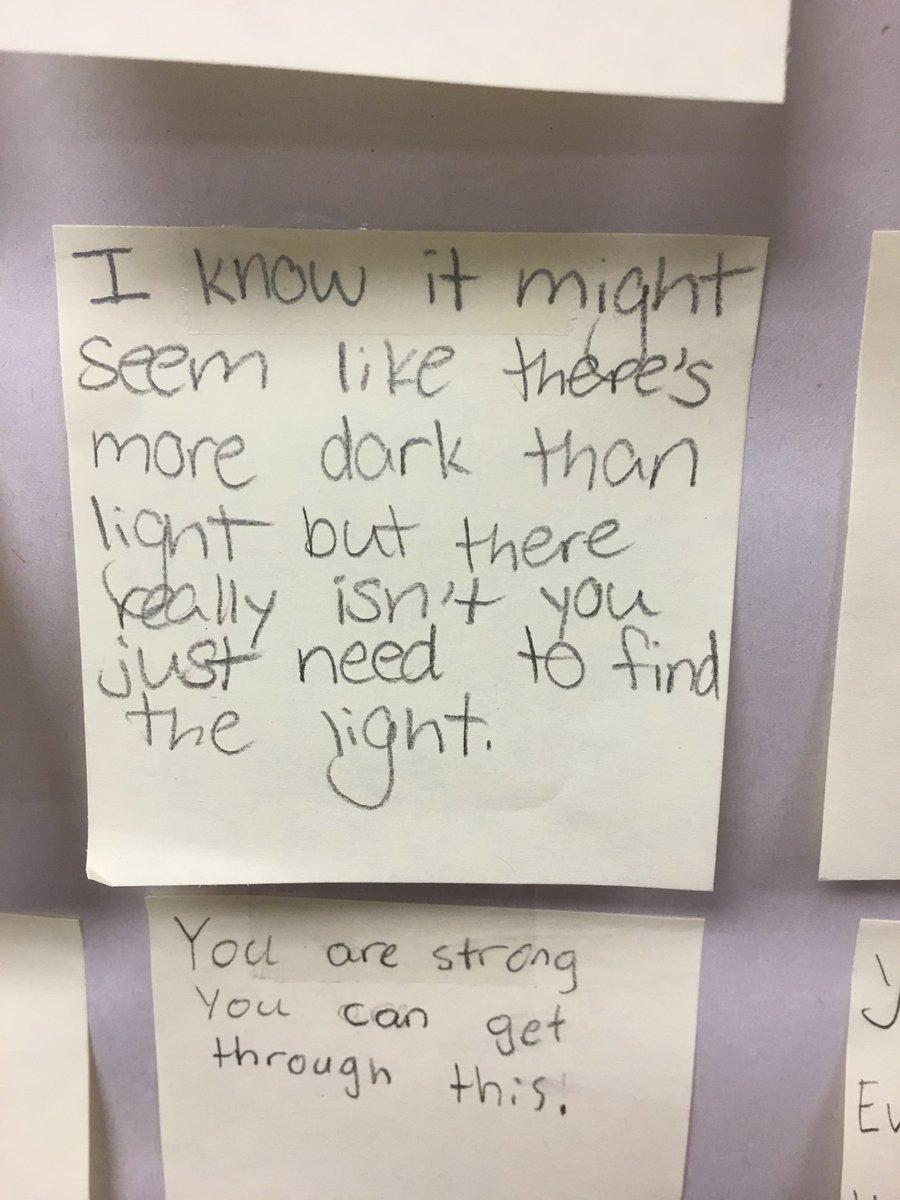 I know it might
seem like there's
more dark than
light but there
really isn't you
just need to find
the light.
You are strong
You can get
through this!
Ev